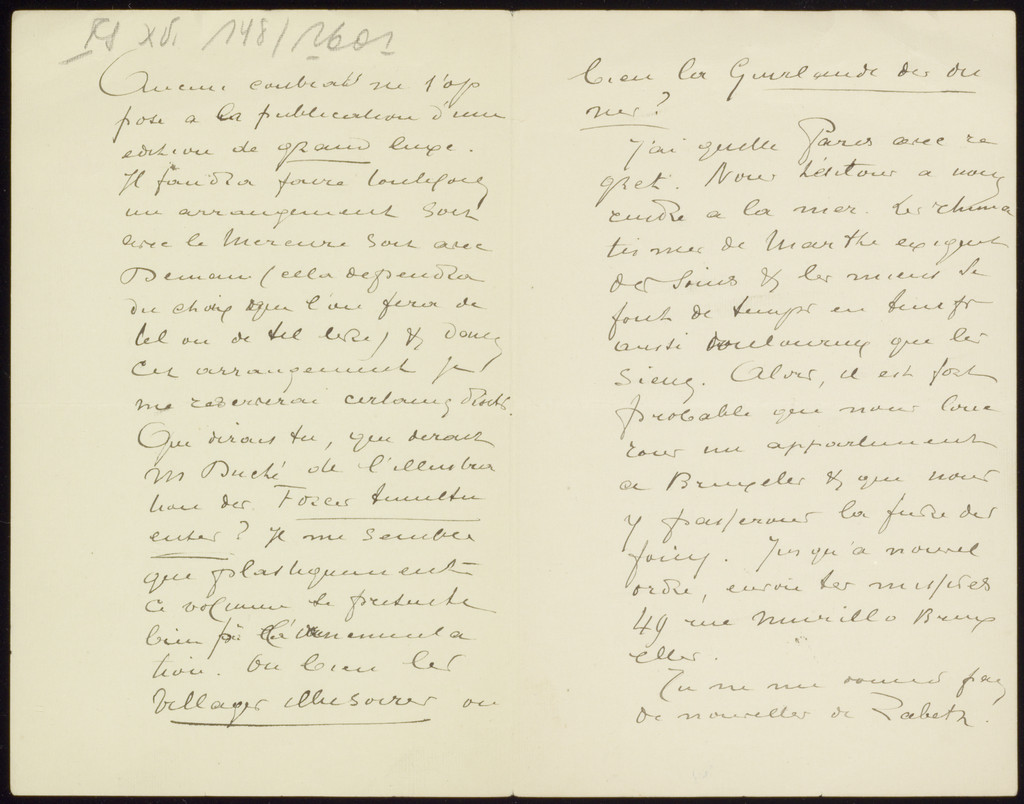 FS XVI 148/1601
Aucun contrat ne s'op
pose a la publication d'une
edition de grand luxe.
Il faudra faire toutefois
un arrangement soit
avec le Mercure soit avec
Deman (cela dependra
du choix que l'on fera de
tel ou de tel livre) & dans
cet arrangement je
me reserverai certains droits.
Que dirais tu, que dirait
M Duché de l'illustra
tion des Forces tumultu
euses? Il me semble
que plastiquement
ce volume se presente
bien à l'ornementa
tion. Ou bien les
Villages illusoires ou
bien la Guirlande des du
nes?
J'ai quitté Paris avec re
gret. Nous hésitons a nous
rendre a la mer. Les rhuma
tismes de Marthe exigent
des soins & les miens se
font de temps en temps
aussi douloureux que les
siens. Alors, il est fort
probable que nous loue
rons un appartement
a Bruxelles & que nous
y passerons la furie des
foins. Jusqu'a nouvel
ordre, envoie tes missives
49 rue Murillo Brux
elles.
Tu ne me donnes pas
de nouvelles de Zabeth.